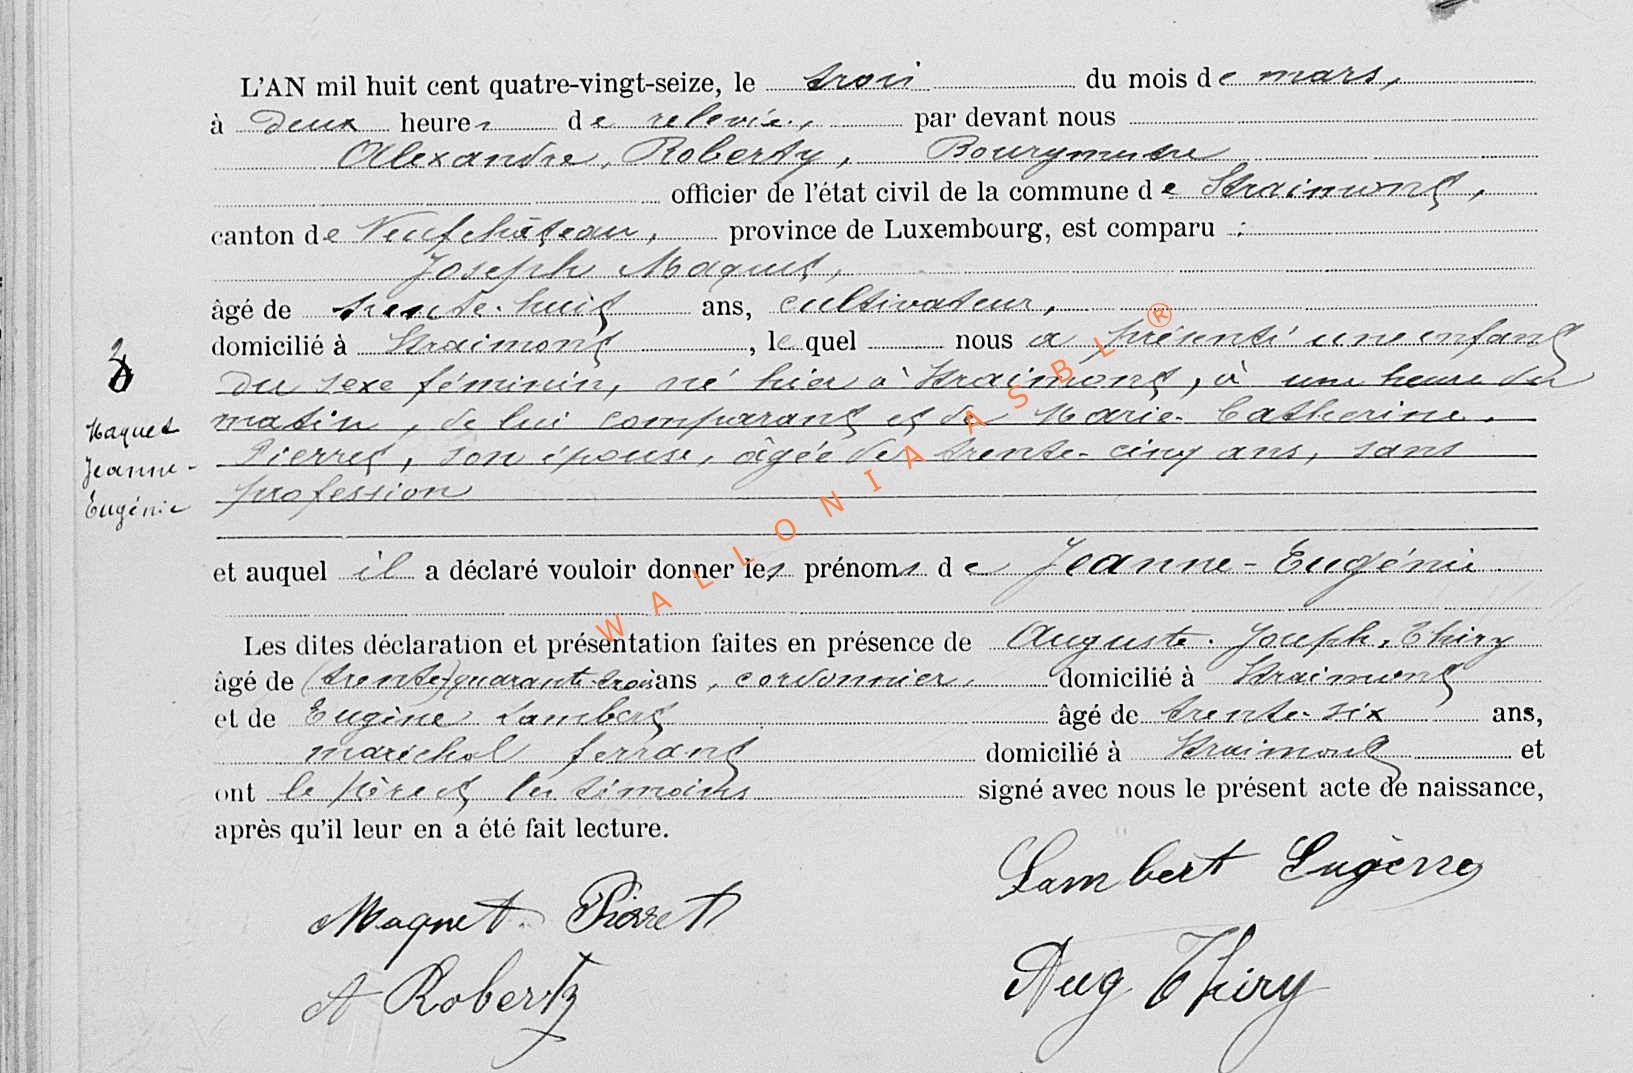 L'AN mil huit cent quatre-vingt-seize, le trois du mois de mars,
à deux heures de relevée, par devant nous
Alexandre, Roberty, Bourgmestre
officier de l'état civil de la commune de Straimont,
canton de Neufchâteau, province de Luxembourg, est comparu :
Joseph Maquet,
âgé de trente-huit ans, cultivateur,
domicilié à Straimont, lequel nous a présenté une enfant
du sexe féminin, né hier à Straimont, à une heure du
matin, de lui comparant et de Marie-Catherine
Pierret, son épouse, âgée de trente-cinq ans, sans
profession
3
Maquet
Jeanne-
Eugénie
et auquel il a déclaré vouloir donner les prénoms de Jeanne-Eugénie.
Les dites déclaration et présentation faites en présence de Auguste-Joseph, Thiry
âgé de (trente) quarante-trois ans, cordonnier, domicilié à Straimont
et de Eugène Lambert âgé de trente-six ans,
maréchal ferrant domicilié à Straimont et
ont le père et les témoins signé avec nous le présent acte de naissance,
après qu'il leur en a été fait lecture.
Lambert Eugène
Maquet-Pierret
Aug Thiry
A Roberty
WALLONIA ASBL ®